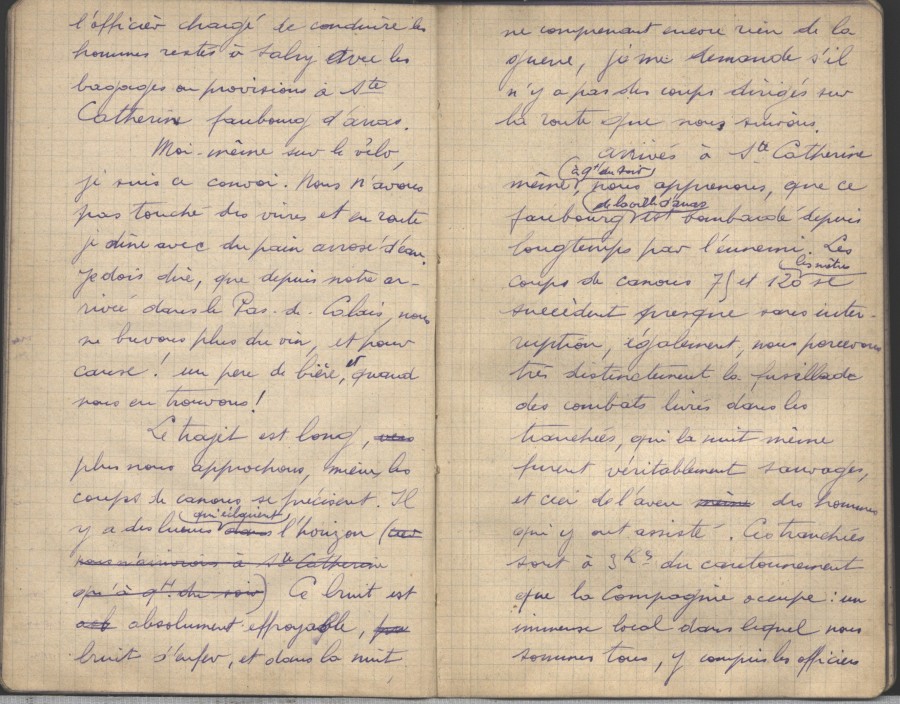 l'officier chargé de conduire les
hommes restés à Salty avec les
bagages ou provisions à Ste
Catherine faubourg d'arras.
Moi-même sur le vélo,
je suis ce convoi. Nous n'avons
pas touché des vivres et en route
je dîne avec du pain arrosé d'eau.
Je dois dire, que depuis notre ar-
rivée dans le Pas-de-Calais, nous
ne buvons plus du vin, et pour
cause! un peu de bière, et quand
nous en trouvons!
Le trajet est long,
plus nous approchons, mieux les
coups de canons se précisent. Il
qui éclairent
y a des lueurs dans l'horizon (car
nous n'arrivons à Ste Catherine
qu'à 9H du soir) Ce bruit est
absolument effroyable,
bruit d'enfer, et dans la nuit,
ne comprenant encore rien de la
guerre, je me demande s'il
n'y a pas des coups dirigés sur
la route que nous suivons.
arrivés à Ste Catherine
à 9H du soir
même, nous apprenons, que ce
de la ville d'arras
faubourg est bombardé depuis
longtemps par l'ennemi. Les
les nôtres
coups de canons 75 et 120 se
succèdent presque sans inter-
ruption, également, nous percevons
très distinctement la fusillade
des combats livrés dans les
tranchées, qui la nuit même
furent véritablement sauvages,
et ceci de l'aveu même des hommes
qui y ont assisté. Ces tranchées
sont à 3 Ks du cantonnement
que la Compagnie occupe: un
immense local dans lequel nous
sommes tous, y compris les officiers